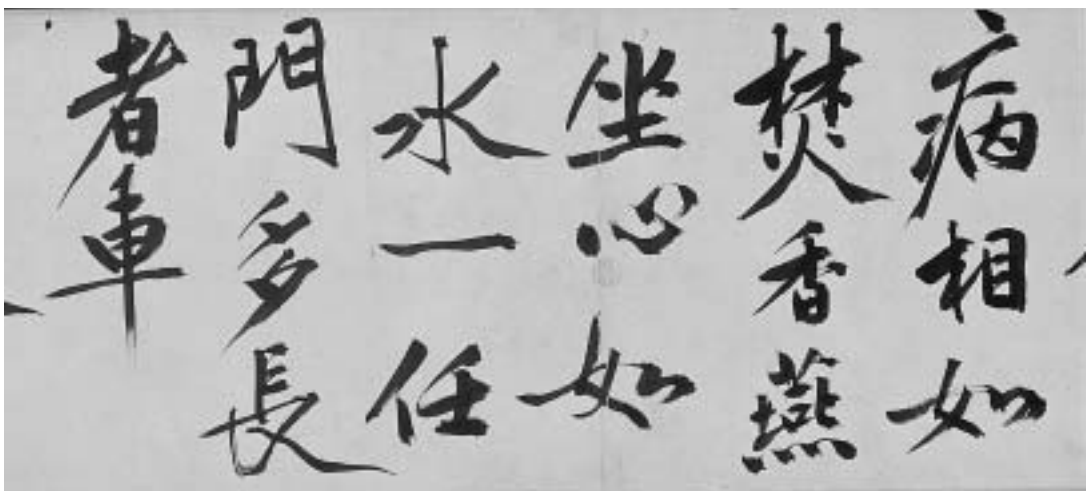 病相如
焚香燕
坐心如
水一任
門多長
者車